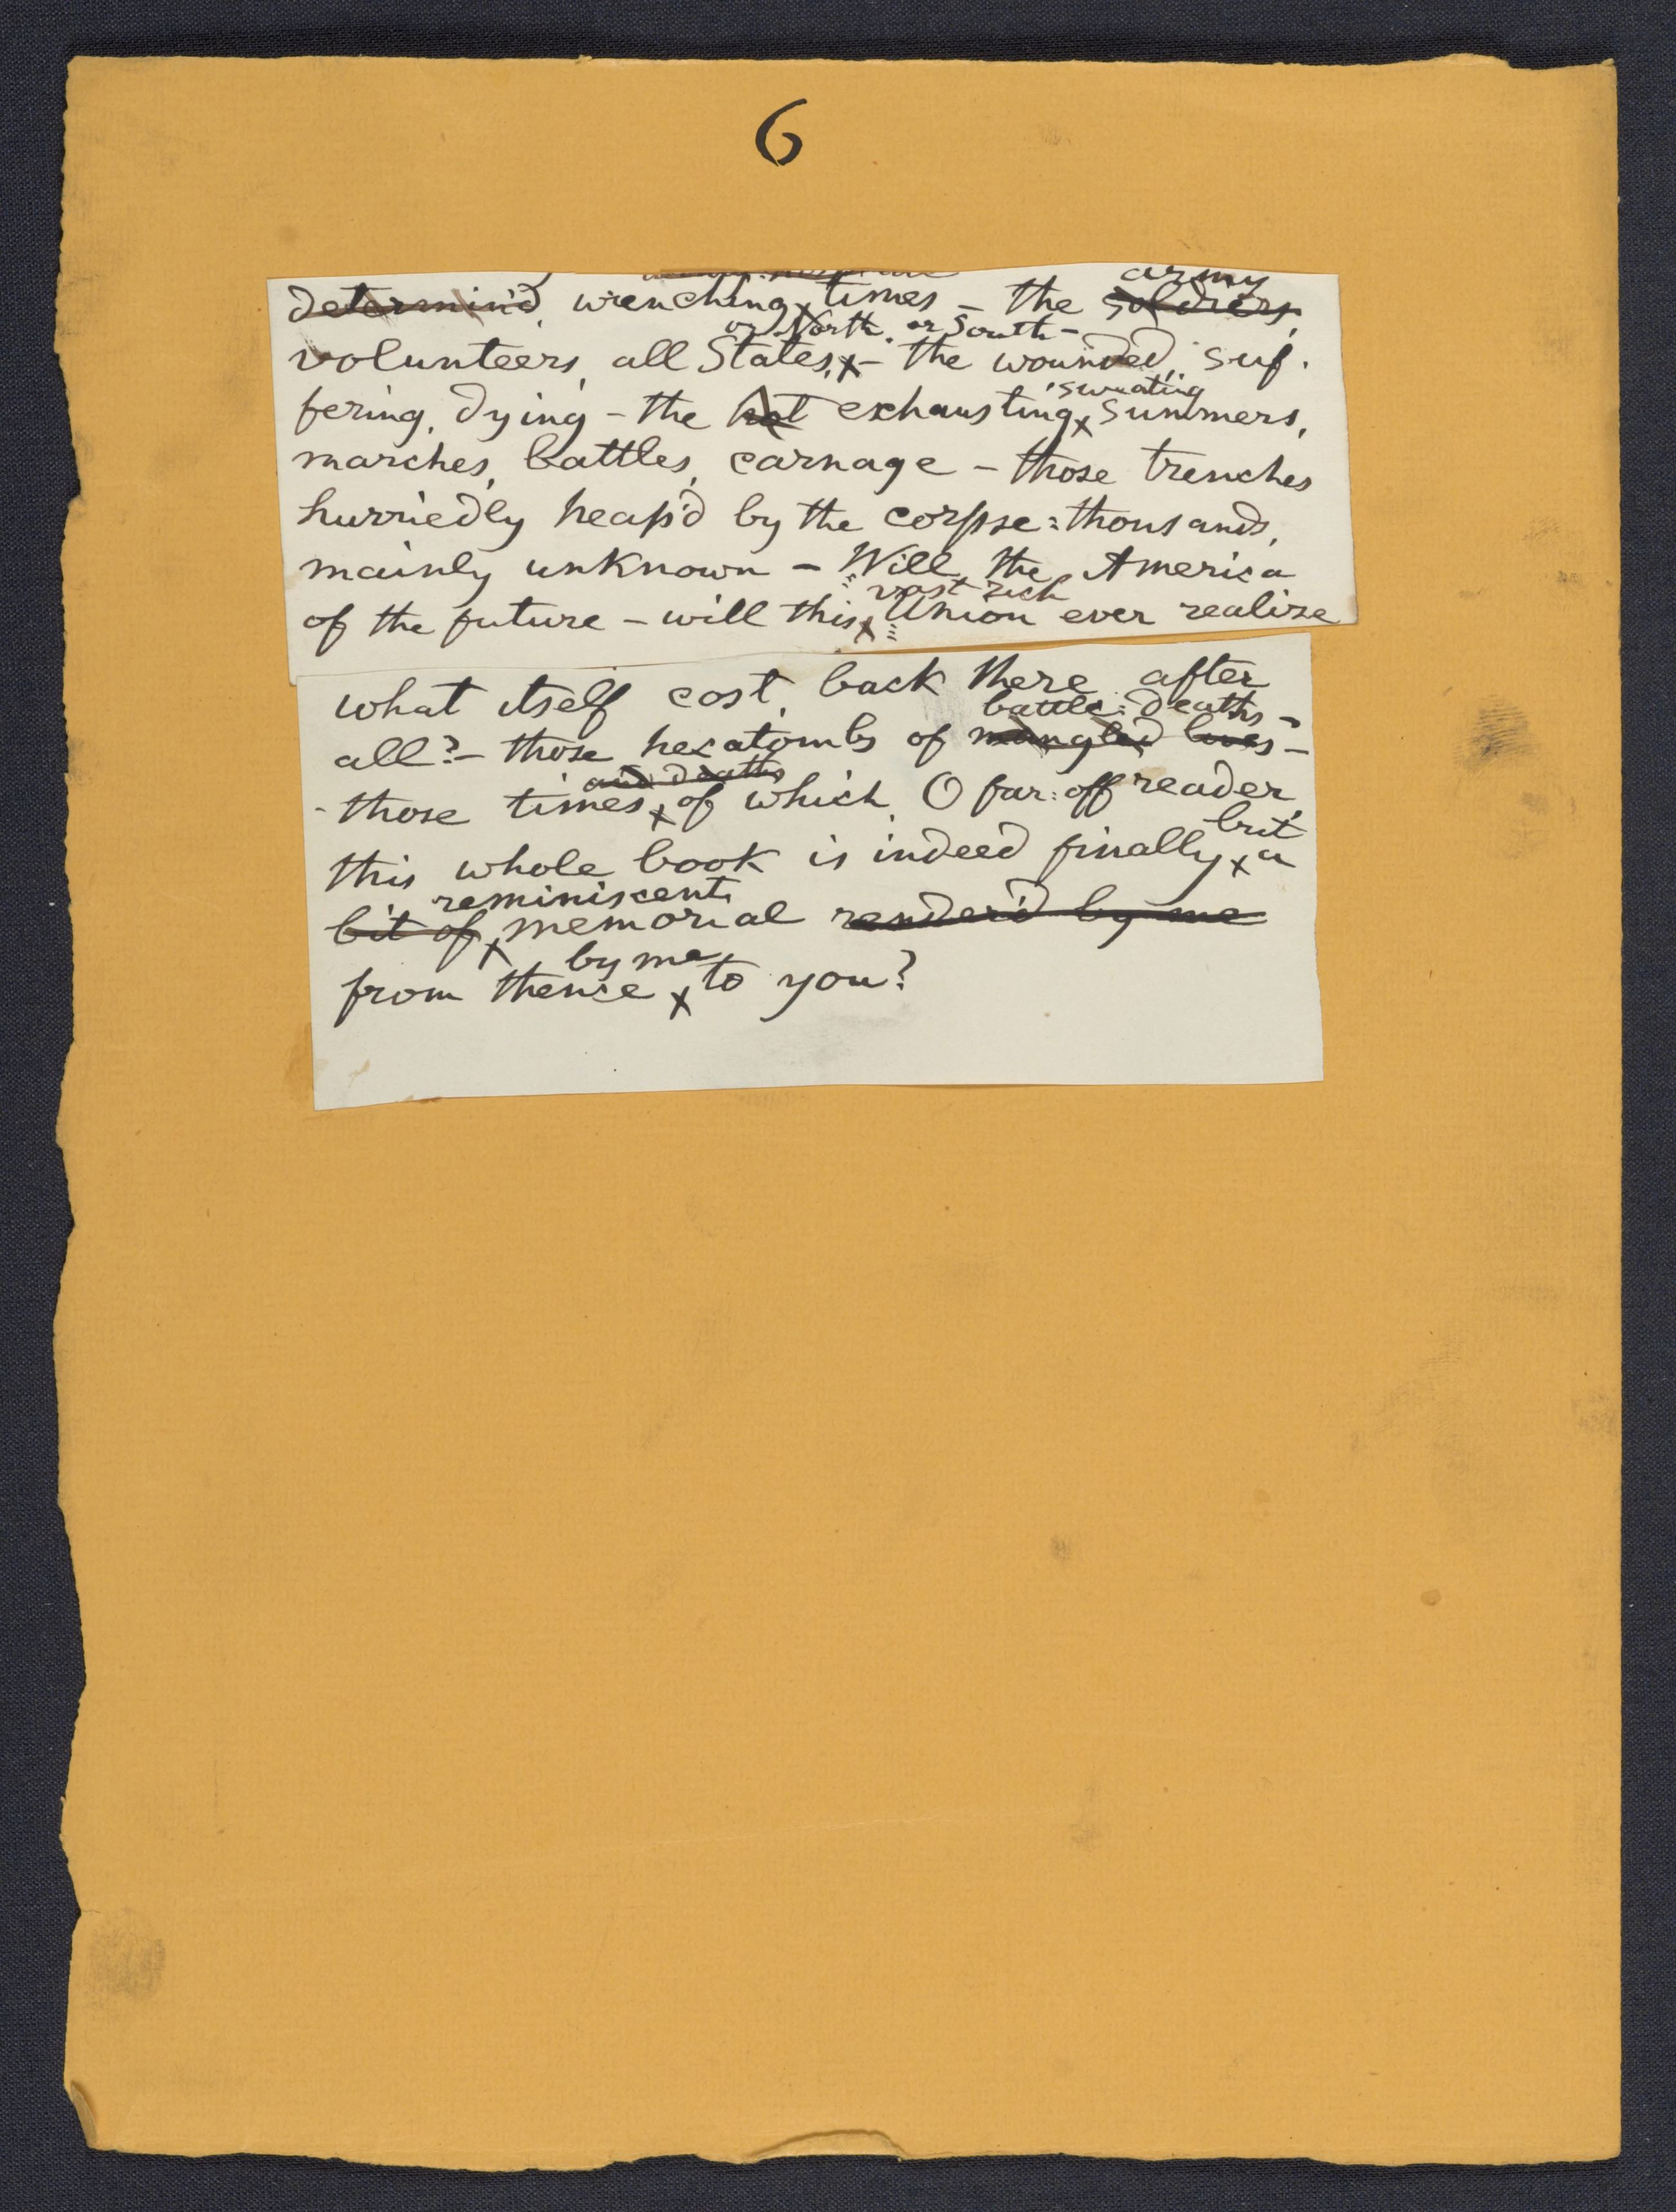 6
army
determin'd, wrenching times – the soldiers,
or North, or South –
volunteers, all States, x – the wounded, suf-
sweating
fering, dying – the hot exhausting, x summers,
marches, battles, carnage – those trenches
hurriedly heap'd by the corpse-thousands,
mainly unknown – Will the America
vast rich
of the future – will this x Union ever realize
what itself cost, back there after
battle-deaths –
all? – those hecatombs of mangled lives –
and deaths
– those times x of which, O far-off reader,
but
this whole book is indeed finally x a
reminiscent
bit of x memorial render'd by me
by me
from thence x to you?